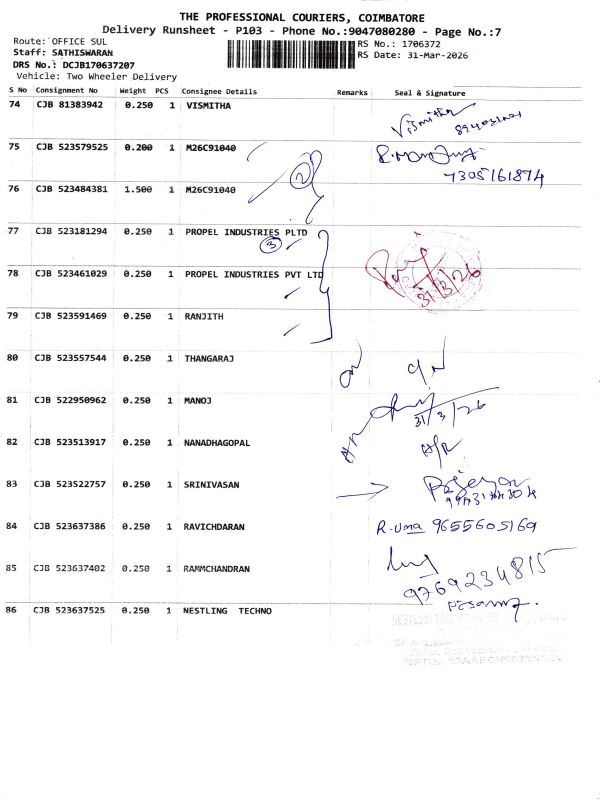 THE PROFESSIONAL COURIERS, COIMBATORE
Delivery Runsheet - P103 - Phone No.:9047080280 - Page No.:7
Route: OFFICE SUL
RS No.: 1706372
Staff: SATHISWARAN
RS Date: 31-Mar-2026
DRS No.: DCJB170637207
Vehicle: Two Wheeler Delivery
S No Consignment No Weight PCS Consignee Details Remarks Seal & Signature
74 CJB 81383942 0.250 1 VISMITHA
Vismitha
75 CJB 523579525 0.200 1 M26C91040
2
7305161874
76 CJB 523484381 1.500 1 M26C91040
77 CJB 523181294 0.250 1 PROPEL INDUSTRIES PLTD
3
78 CJB 523461029 0.250 1 PROPEL INDUSTRIES PVT LTD
31/3/26
79 CJB 523591469 0.250 1 RANJITH
80 CJB 523557544 0.250 1 THANGARAJ
81 CJB 522950962 0.250 1 MANOJ
31/3/26
82 CJB 523513917 0.250 1 NANADHAGOPAL
83 CJB 523522757 0.250 1 SRINIVASAN
84 CJB 523637386 0.250 1 RAVICHDARAN
R-uma 9655605169
85 CJB 523637402 0.250 1 RAMMCHANDRAN
9769234815
86 CJB 523637525 0.250 1 NESTLING TECHNO